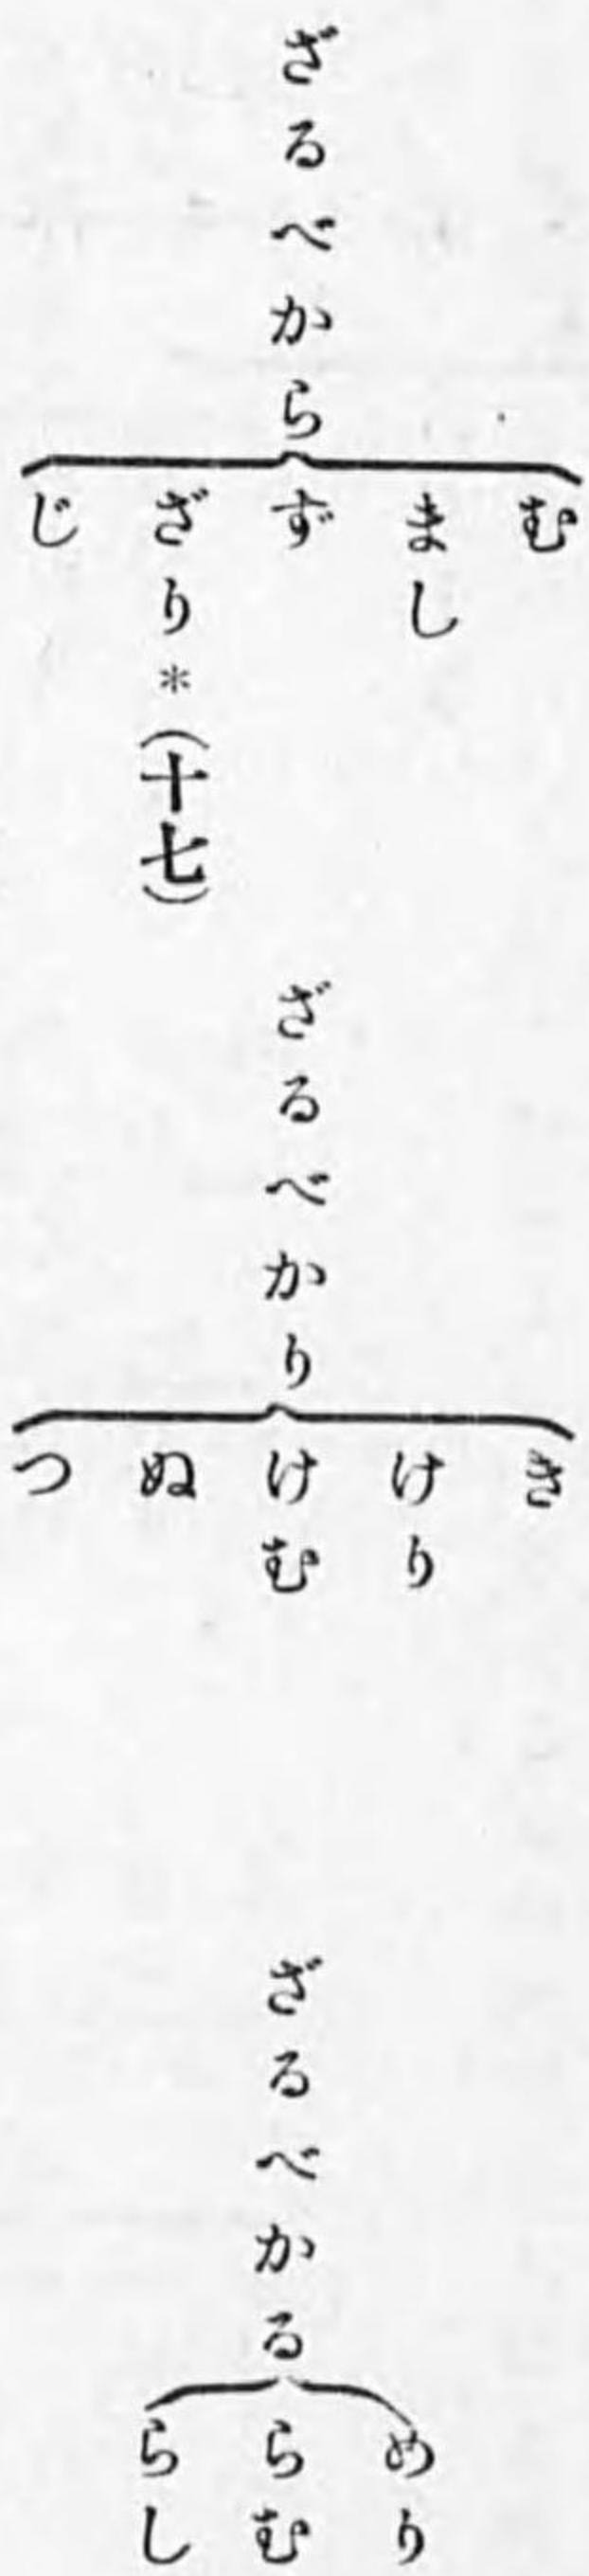 ざるべから
む
まし
ず
ざり*(十七)
じ
ざるべかり
き
けり
けむ
ぬ
つ
ざるべかる
めり
らむ
らし